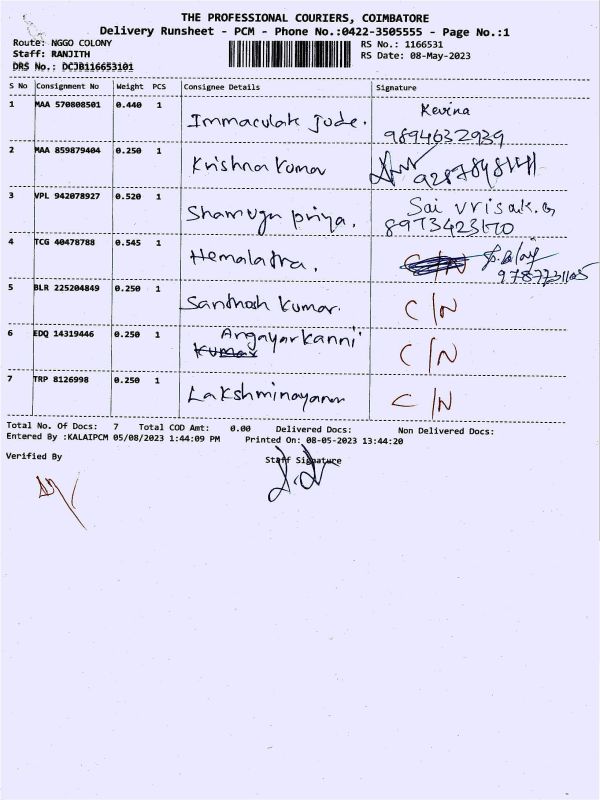 THE PROFESSIONAL COURIERS, COIMBATORE
Delivery Runsheet - PCM - Phone No.:0422-3505555 - Page No.:1
Route: NGGO COLONY RS No.: 1166531
Staff: RANJITH RS Date: 08-May-2023
DRS No.: DCJB116653101
S No Consignment No Weight PCS Consignee Details Signature
1 MAA 570808501 0.440 1 Immaculate Jude. Kevina
9894632939
2 MAA 859879404 0.250 1 Krishna Kumar
3 VPL 942078927 0.520 1 Shamuga priya. Sai vrisak.G
8973423170
4 TCG 40478788 0.545 1 Hemalatha. C/N
5 BLR 225204849 0.250 1 Santhosh Kumar. C/N
6 EDQ 14319446 0.250 1 Argayarkanni C/N
Kumar
7 TRP 8126998 0.250 1 Lakshminarayanan C/N
Total No. Of Docs: 7 Total COD Amt: 0.00 Delivered Docs: Non Delivered Docs:
Entered By :KALAIPCM 05/08/2023 1:44:09 PM Printed On: 08-05-2023 13:44:20
Verified By Staff Signature